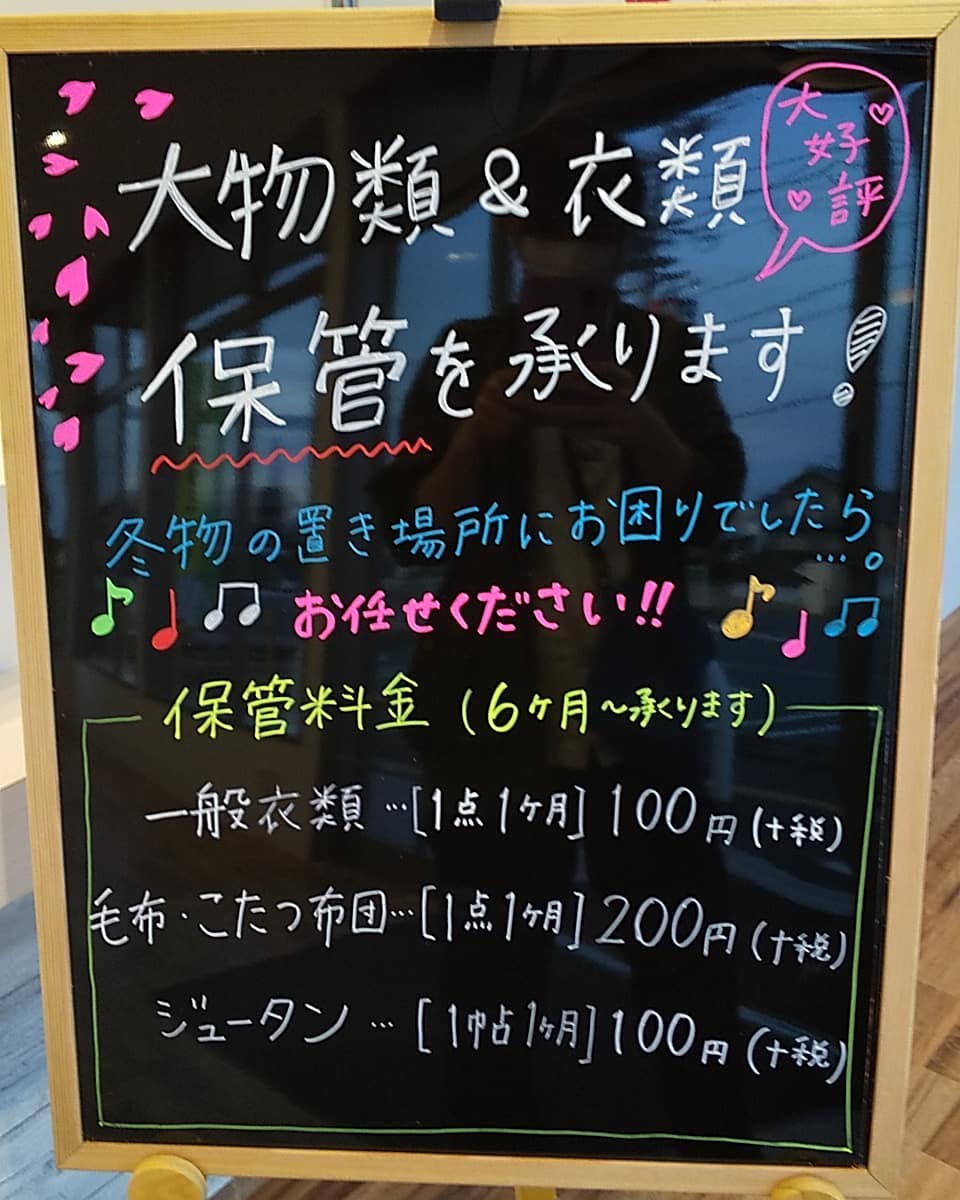 大物類&衣類
大好評
保管を承ります!
冬物の置き場所にお困りでしたら…。
お任せください!!
保管料金(6ヶ月~承ります)
一般衣類…[1点1ヶ月]100円(+税)
毛布・こたつ布団…[1点1ヶ月]200円(+税)
ジュータン…[1帖1ヶ月]100円(+税)